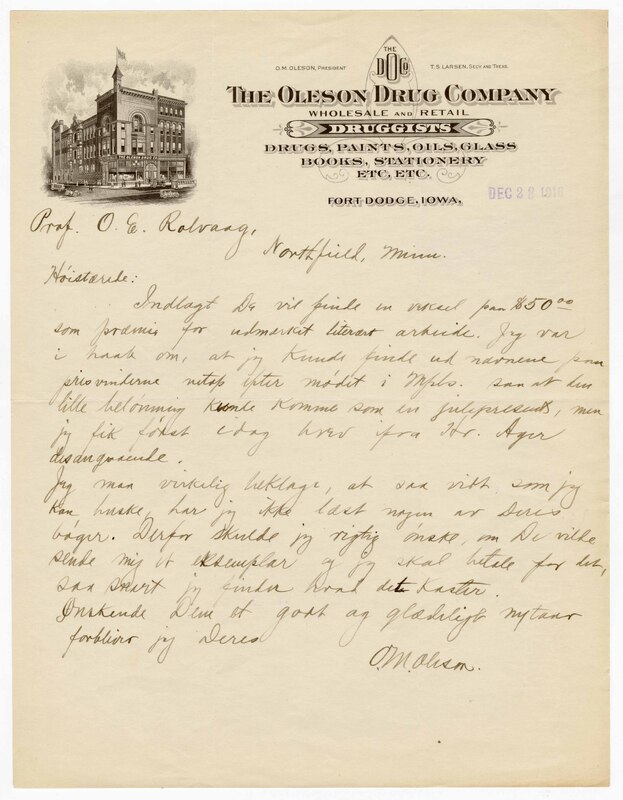 THE
D O Co
O. M. OLESON, PRESIDENT
T. S. LARSEN, SECY. AND TREAS.
THE OLESON DRUG COMPANY
WHOLESALE AND RETAIL
DRUGGISTS
DRUGS, PAINTS, OILS, GLASS
BOOKS, STATIONERY
ETC, ETC.
FORT DODGE, IOWA,
DEC 28 1916
Prof. O. E. Rolvaag,
Northfield, Minn.
Høistærede:
Indlagt De vil finde en veksel paa $50.00
som præmie for udmerket literært arbeide. Jeg var
i haab om, at jeg kunde finde ud navnene paa
prisvinderne netop efter mødet i Mpls. saa at den
lille belønning kunde komme som en julepresent, men
jeg fik først idag brev ifra Hr. Ager
desangaaende.
Jeg maa virkelig beklage, at saa vidt som jeg
kan huske, har jeg ikke læst nogen av Deres
bøger. Derfor skulde jeg rigtig ønske, om De vilde
sende mig et eksemplar og jeg skal betale for det,
saa snart jeg finder hvad det koster.
Ønskende Dem et godt og glædeligt nytaar
forbliver jeg Deres
O. M. Oleson.